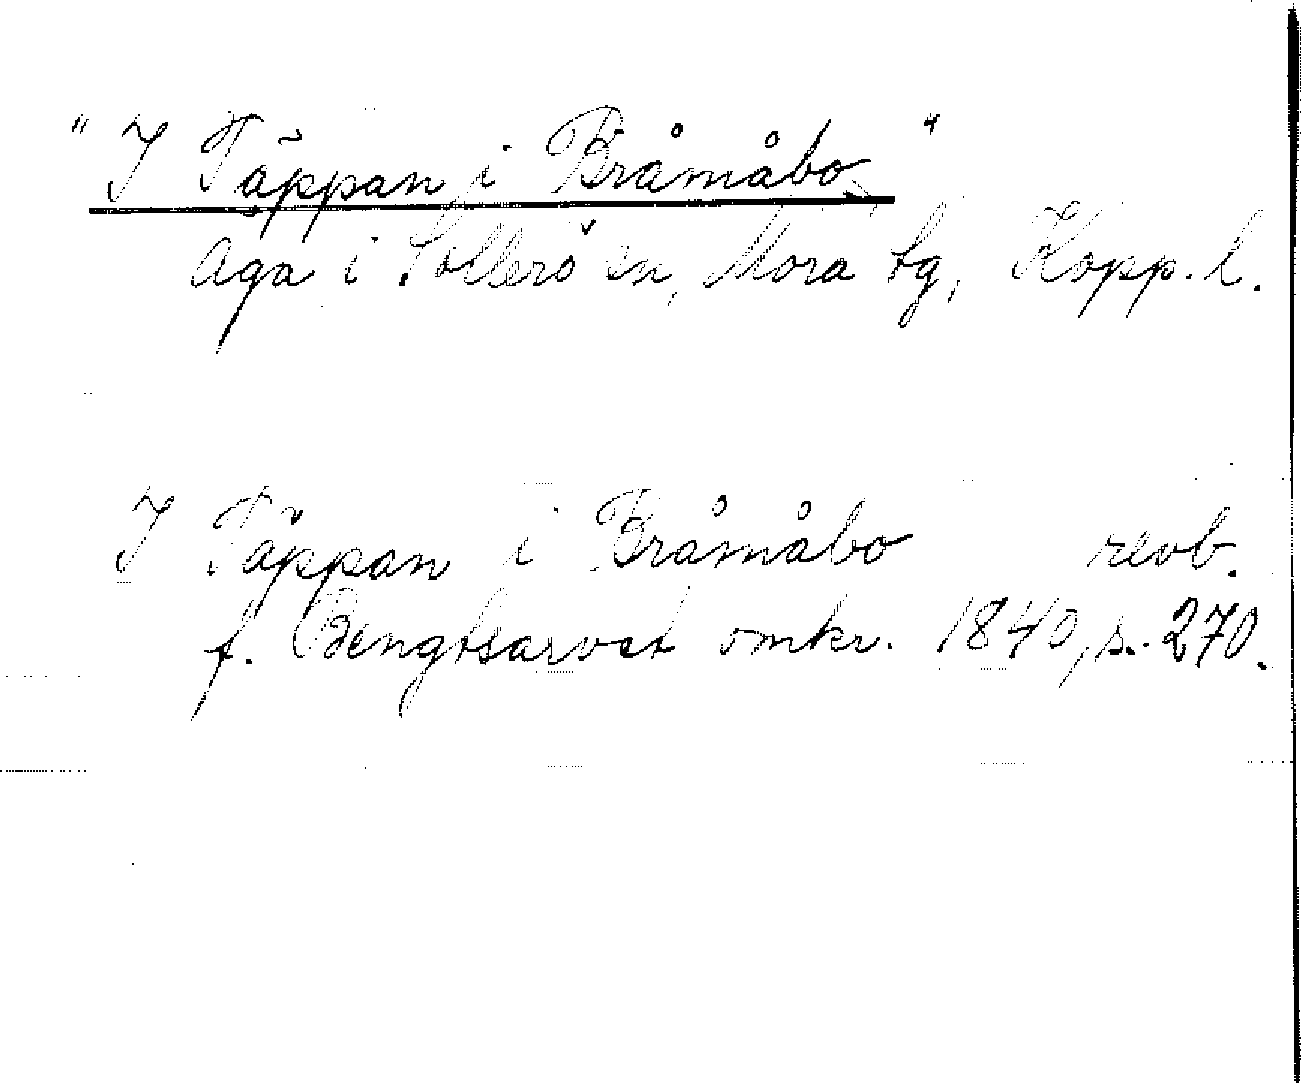 "I Täppan i Bråmåbo"
Äga i Sollerö sn, Mora tg, Kopp. l.
I Täppan i Bråmåbo revb.
f. Bengtsarvet omkr. 1840, s. 270.